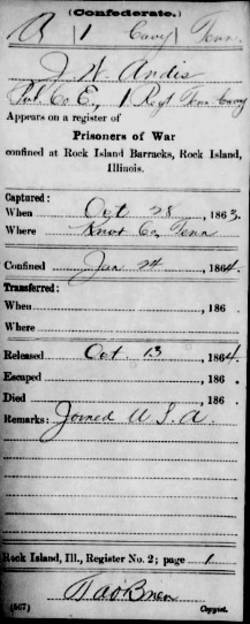 (Confederate.)
A | 1 | Cavy | Tenn.
J. W. Andis
Pvt. Co E., 1 Regt Tenn Cavy
Appears on a register of
Prisoners of War
confined at Rock Island Barracks, Rock Island,
Illinois.
Captured:
When Oct 28, 1863.
Where Knox Co, Tenn
Confined Jan 24, 1864.
Transferred:
When , 186 .
Where
Released Oct. 13, 1864.
Escaped , 186 .
Died , 186 .
Remarks: Joined U.S.A.
Rock Island, Ill., Register No. 2; page 1
(567) Copyist.